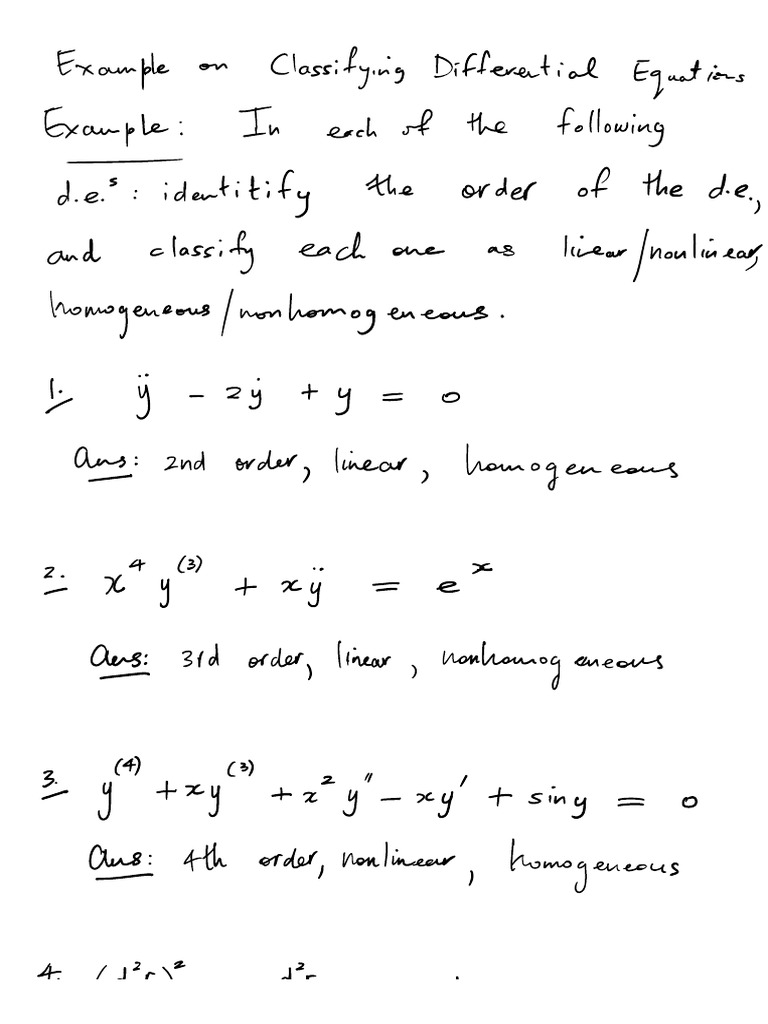 Example on Classifying Differential Equations
Example: In each of the following
d.e.ˢ : identitify the order of the d.e.,
and classify each one as linear/nonlinear,
homogeneous/nonhomogeneous.
1. ÿ - 2ẏ + y = 0
Ans: 2nd order, linear, homogeneous
2. x⁴ y⁽³⁾ + xÿ = eˣ
Ans: 3rd order, linear, nonhomogeneous
3. y⁽⁴⁾ + xy⁽³⁾ + x² y″ - xy′ + sin y = 0
Ans: 4th order, nonlinear, homogeneous
4.